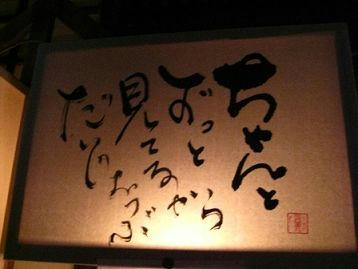 ちゃんと
ずっと
見てるから
だいじょうぶ